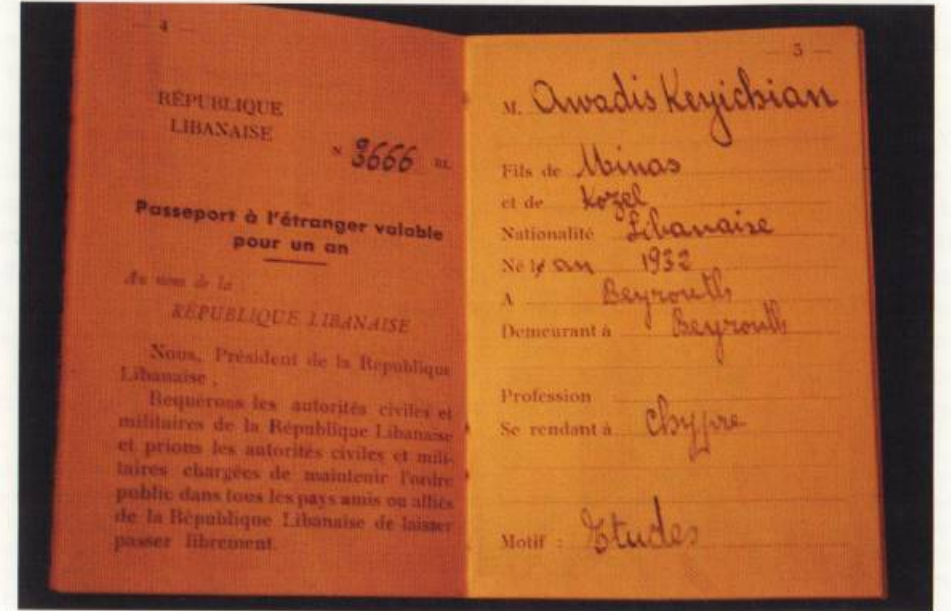 — 4 —
RÉPUBLIQUE
LIBANAISE
N 3666 RL.
Passeport à l'étranger valable
pour un an
Au nom de la
RÉPUBLIQUE LIBANAISE
Nous, Président de la République
Libanaise,
Requerons les autorités civiles et
militaires de la République Libanaise
et prions les autorités civiles et mili-
taires chargées de maintenir l'ordre
public dans tous les pays amis ou alliés
de la République Libanaise de laisser
passer librement.
— 5 —
M. Awadis Keyichian
Fils de Minas
et de Kozel
Nationalité Libanaise
Né le an 1932
A Beyrouth
Demeurant à Beyrouth
Profession
Se rendant à Chypre
Motif : Etudes